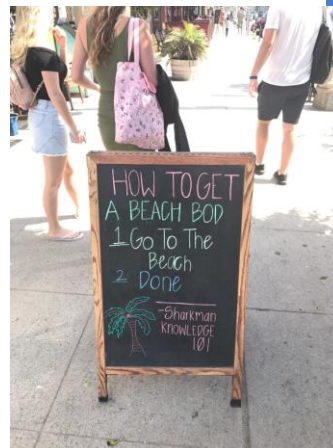 HOW TO GET
A BEACH BOD
1 Go To The
Beach
2 Done
~Sharkman
KNOWLEDGE
101